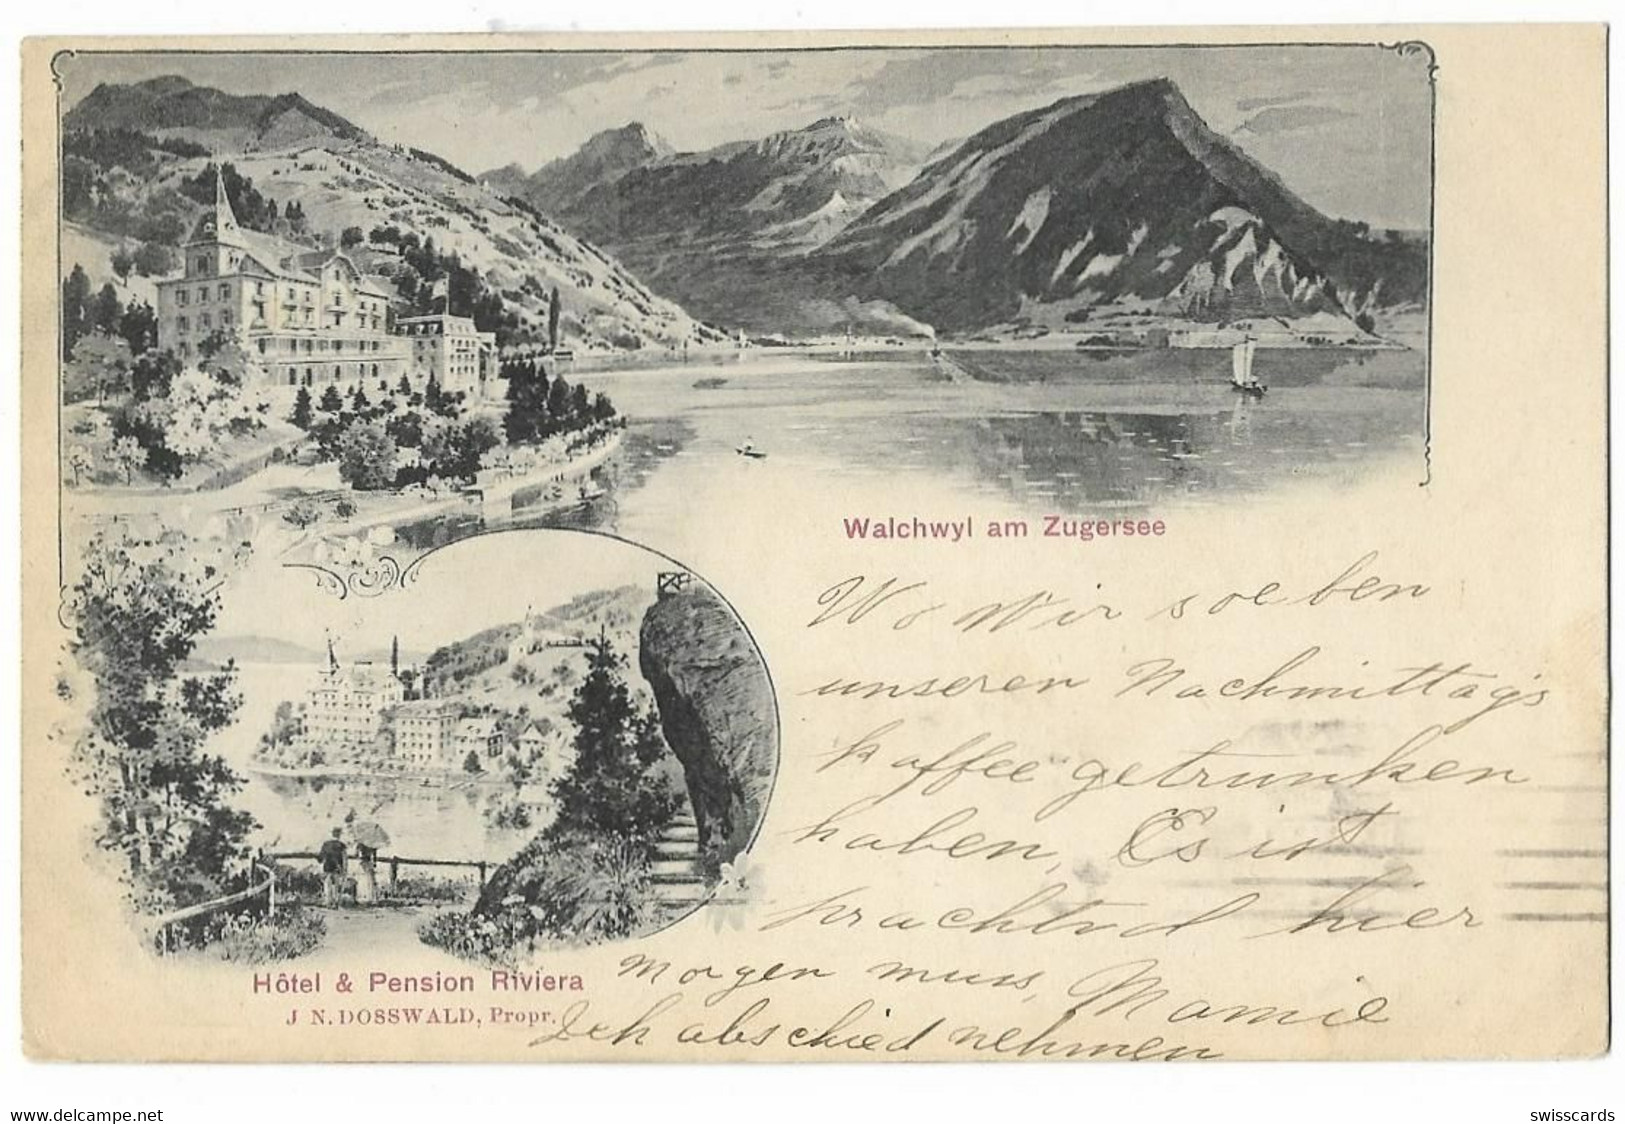 Walchwyl am Zugersee
Wo Wir soeben
unseren Nachmittags
kaffee getrunken
haben, Es ist
prachtvol hier
morgen muss, Mamie
Ich abschied nehmen
Hôtel & Pension Riviera
J N. DOSSWALD, Propr.
www.delcampe.net
swisscards